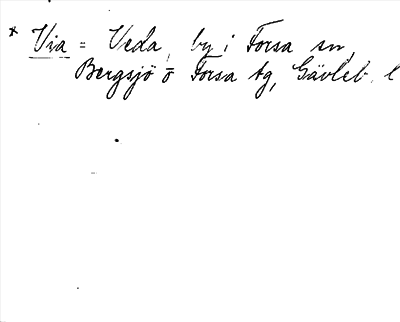 * Via = Veda, by i Forsa sn,
Bergsjö o Forsa tg, Gävleb. l